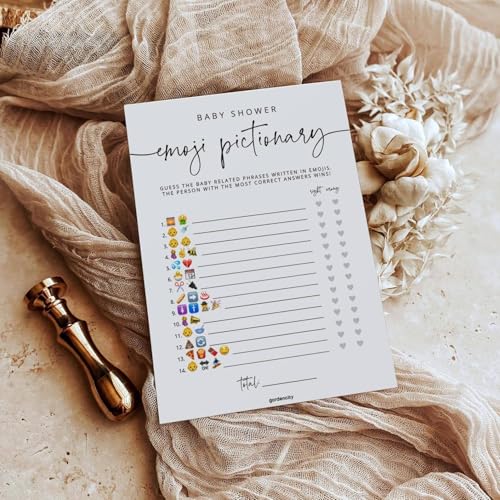 BABY SHOWER
emoji pictionary
GUESS THE BABY RELATED PHRASES WRITTEN IN EMOJIS.
THE PERSON WITH THE MOST CORRECT ANSWERS WINS!
right wrong
1.
2.
3.
4.
5.
6.
7.
8.
9.
10.
11.
12.
13.
14.
total: